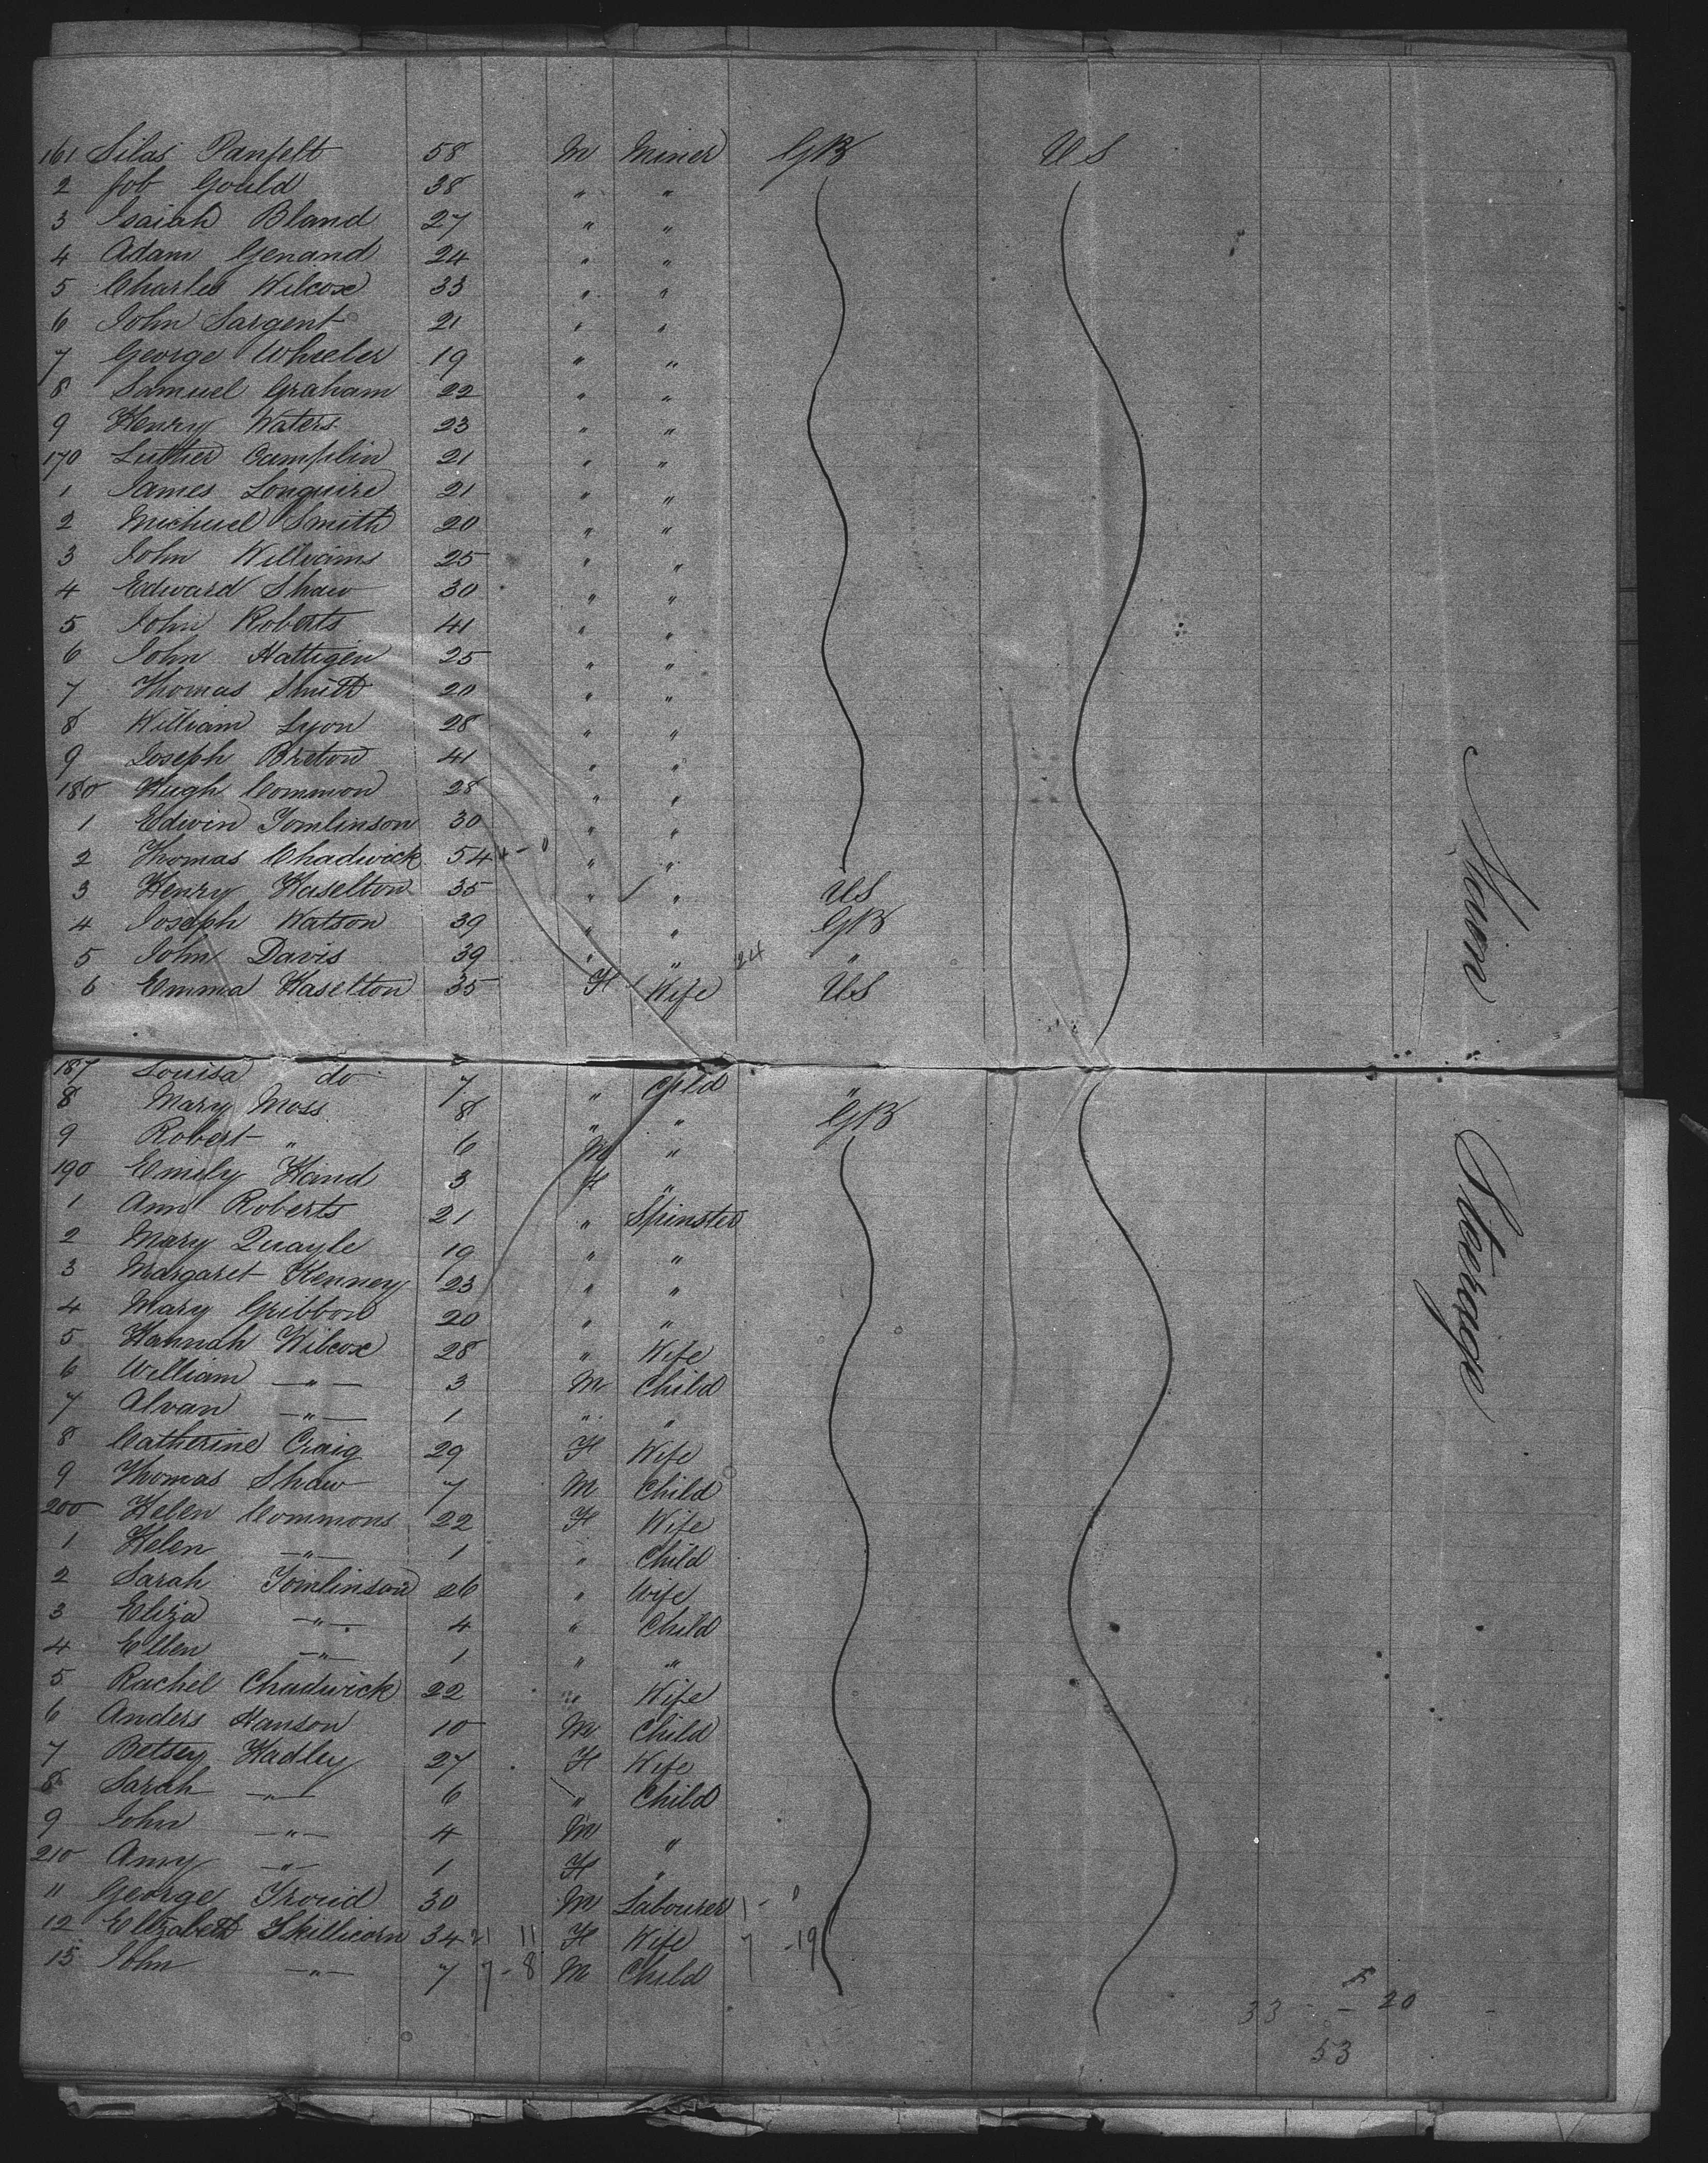 161 Silas Panfelt 58 M Miner GB US
2 Job Gould 38 " "
3 Isaiah Bland 27 " "
4 Adam Genand 24 " "
5 Charles Wilcox 33 " "
6 John Sargent 21 " "
7 George Wheeler 19 " "
8 Samuel Graham 22 " "
9 Henry Waters 23 " "
170 Luther Camplin 21 " "
1 James Longuire 21 " "
2 Michael Smith 20 " "
3 John Williams 25 " "
4 Edward Shaw 30 " "
5 John Roberts 41 " "
6 John Hattigen 25 " "
7 Thomas Smith 20 " "
8 William Lyon 28 " "
9 Joseph Breton 41 " "
180 Hugh Common 28 " "
1 Edwin Tomlinson 30 " "
2 Thomas Chadwick 54 " "
3 Henry Haselton 35 " " US
4 Joseph Watson 39 " " GB
5 John Davis 39 " " 24 "
6 Emma Haselton 35 F Wife US
187 Louisa do 7 " Child "
8 Mary Moss 8 " " GB
9 Robert " 6 M "
190 Emily Hand 3 F "
1 Ann Roberts 21 " Spinster
2 Mary Quayle 19 " "
3 Margaret Kenney 23 " "
4 Mary Gribbon 20 " "
5 Hannah Wilcox 28 " Wife
6 William —"— 3 M Child
7 Alvan —"— 1 " "
8 Catherine Craig 29 F Wife
9 Thomas Shaw 7 M Child
200 Helen Commons 22 F Wife
1 Helen —"— 1 " Child
2 Sarah Tomlinson 26 " Wife
3 Eliza —"— 4 " Child
4 Ellen —"— 1 " "
5 Rachel Chadwick 22 " Wife
6 Anders Hanson 10 M Child
7 Betsey Hadley 27 F Wife
8 Sarah —"— 6 " Child
9 John —"— 4 M "
210 Amy —"— 1 F "
11 George Froud 30 M Labourer 1 - 0
12 Elizabeth Skillicorn 34 21 11 F Wife 7 - 19
15 John —"— 7 7 - 8 M Child
33 - 20
53
Steerage